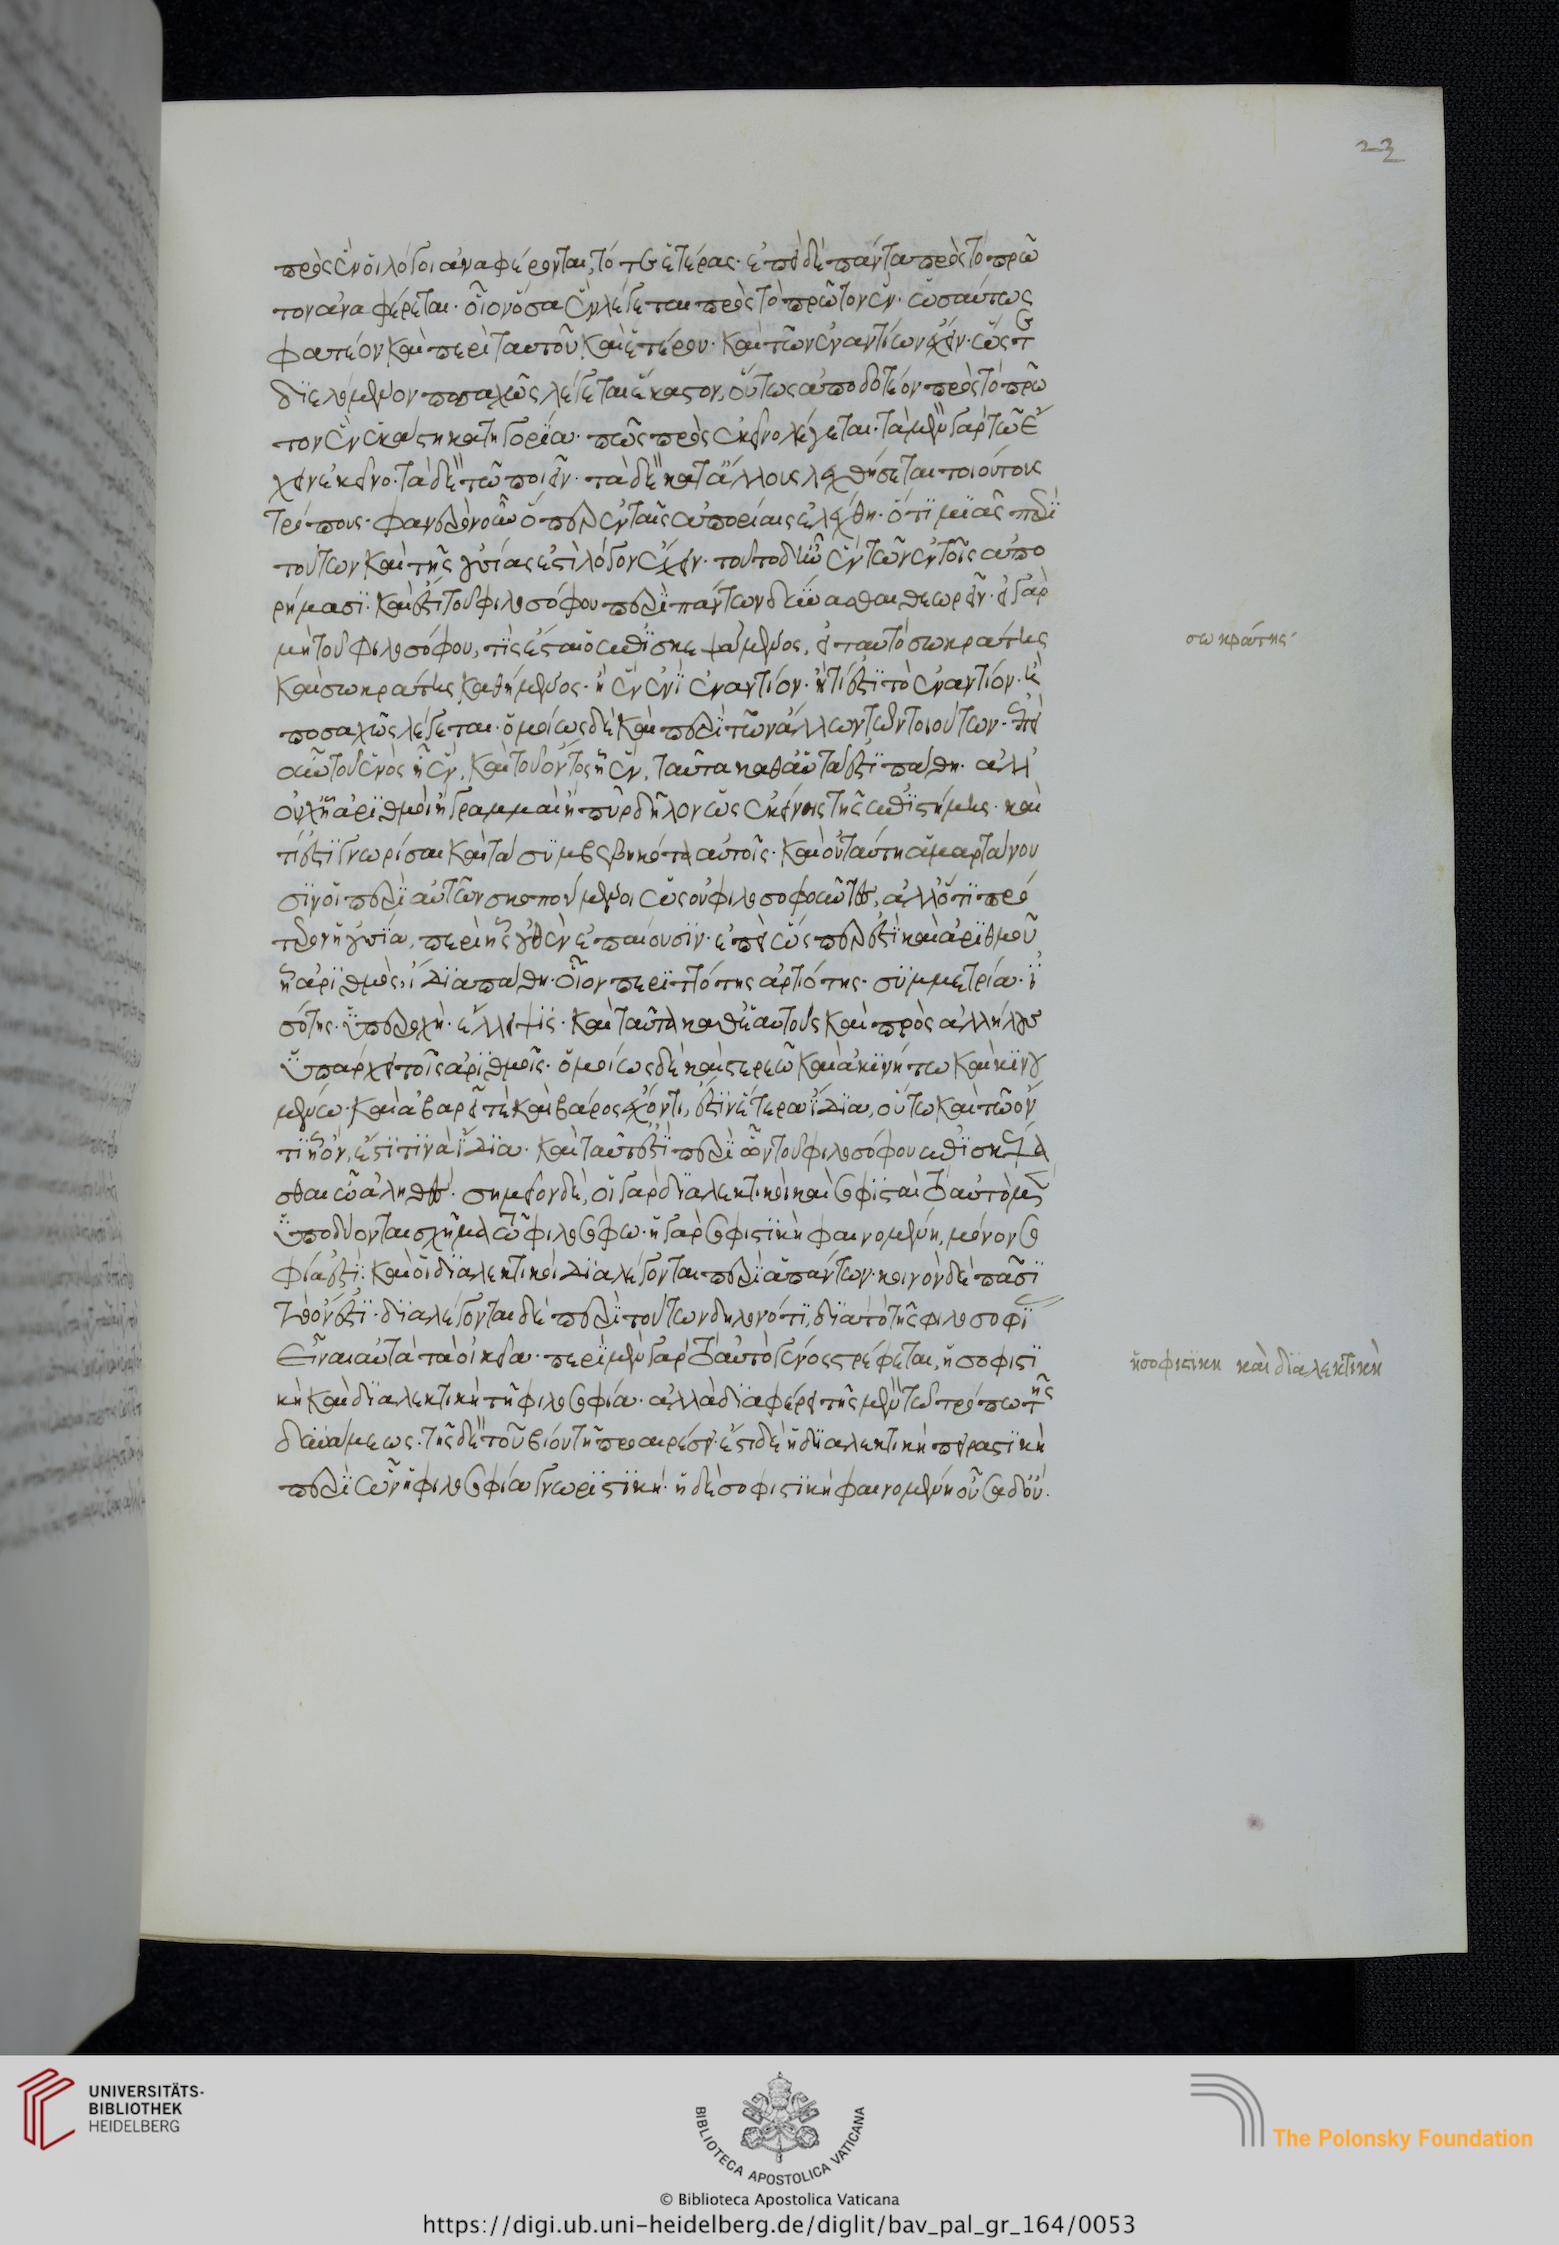 23
πρὸς ἓν οἱ λόγοι ἀναφέρονται, τότε ἑτέρας· ἐπεὶ δὲ πάντα πρὸς τὸ πρῶ
τον ἀναφέρεται· οἷον ὅσα ἓν λέγεται πρὸς τὸ πρῶτον ἕν· ὡσαύτως
φατέον καὶ περὶ ταυτοῦ καὶ ἑτέρου· καὶ τῶν ἐναντίων ἔχειν· ὥστε
διελόμενον ποσαχῶς λέγεται ἕκαστον, οὕτως ἀποδοτέον πρὸς τὸ πρῶ
τον ἐν ἑκάστη κατηγορία· πῶς πρὸς ἐκεῖνο λέγεται· τὰ μὲν γὰρ τῶ ἔ
χειν ἐκεῖνο· τὰ δὲ τῶ ποιεῖν· τὰ δὲ κατ ἄλλους λεχθήσεται τοιούτους
τρόπους· φανερὸν οὖν ὅπερ ἐν ταῖς ἀπορίαις ἐλέχθη· ὅτι μιᾶς περὶ
τούτων καὶ τῆς οὐσίας ἐστὶ λόγον ἔχειν· τοῦτο δ ἦν ἓν τῶν ἐν τοῖς ἀπο
ρήμασι· καὶ ἔστι τοῦ φιλοσόφου περὶ πάντων δύνασθαι θεωρεῖν· εἰ γὰρ
μὴ τοῦ φιλοσόφου, τίς ἔσται ὁ ἐπισκεψάμενος, εἰ ταυτὸ σωκράτης
καὶ σωκράτης καθήμενος· ἢ ἓν ἑνὶ ἐναντίον· ἢ τί ἐστι τὸ ἐναντίον· ἢ
ποσαχῶς λέγεται· ὁμοίως δὲ καὶ περὶ τῶν ἄλλων τῶν τοιούτων· ἐπεὶ
οὖν τοῦ ἑνὸς ἧ ἓν, καὶ τοῦ ὄντος ἧ ὂν, ταῦτα καθ αὑτά ἐστι πάθη· ἀλλ
οὐχ ἧ ἀριθμοὶ ἢ γραμμαὶ ἢ πῦρ δῆλον ὡς ἐκείνης τῆς ἐπιστήμης· καὶ
τί ἐστι γνωρίσαι καὶ τὰ συμβεβηκότα αὐτοῖς· καὶ οὐ ταύτη ἁμαρτάνου
σιν οἱ περὶ αὐτῶν σκοπούμενοι ὡς οὐ φιλοσοφοῦντες, ἀλλ ὅτι πρό
τερον ἡ οὐσία, περὶ ἧς οὐθὲν ἐπαΐουσιν· ἐπεὶ ὥσπερ ἐστὶ καὶ ἀριθμοῦ
ἧ ἀριθμὸς, ἴδια πάθη· οἷον περιττότης ἀρτιότης· συμμετρία· ἰ
σότης· ὑπεροχὴ· ἔλλειψις· καὶ ταῦτα καθ ἑαυτοὺς καὶ πρὸς ἀλλήλους
ὑπάρχει τοῖς ἀριθμοῖς· ὁμοίως δὲ καὶ στερεῶ καὶ ἀκινήτω καὶ κινου
μένω· καὶ ἀβαρεῖ τὲ καὶ βάρος ἔχοντι, ἔστιν ἕτερα ἴδια, οὕτω καὶ τῶ ὄν
τι ἧ ὂν, ἔστι τινὰ ἴδια· καὶ ταῦτ ἐστὶ περὶ ὧν τοῦ φιλοσόφου ἐπισκέψα
σθαι τἀληθές· σημεῖον δὲ, οἱ γὰρ διαλεκτικοὶ καὶ σοφισταὶ ταὐτὸ μὲν
ὑποδύονται σχῆμα τῶ φιλοσόφω· ἡ γὰρ σοφιστικὴ φαινομένη, μόνον σο
φία ἐστί· καὶ οἱ διαλεκτικοὶ διαλέγονται περὶ ἁπάντων· κοινὸν δὲ πᾶσι
τὸ ὄν ἐστι· διαλέγονται δὲ περὶ τούτων δηλονότι, διὰ τὸ τῆς φιλοσοφί
εἶναι αὐτὰ τὰ οἰκεῖα· περὶ μὲν γὰρ ταὐτὸ γένος στρέφεται, ἡ σοφιστι
κὴ καὶ διαλεκτικὴ τῆ φιλοσοφία· ἀλλὰ διαφέρει τῆς μὲν τῶ τρόπω τῆς
δυνάμεως· τῆς δὲ τοῦ βίου τῆ προαιρέσει· ἔστι δὲ ἡ διαλεκτικὴ πειραστικὴ
περὶ ὧν ἡ φιλοσοφία γνωριστική· ἡ δὲ σοφιστικὴ φαινομένη οὖσα δ οὔ·
σωκράτης·
ἡ σοφιστικη καὶ διαλεκτικὴ
UNIVERSITÄTS-
BIBLIOTHEK
HEIDELBERG
BIBLIOTECA APOSTOLICA VATICANA
© Biblioteca Apostolica Vaticana
The Polonsky Foundation
https://digi.ub.uni-heidelberg.de/diglit/bav_pal_gr_164/0053